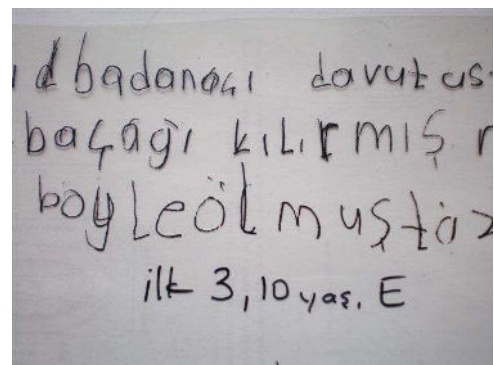 badanacı davut us
baçağı kılırmış
böyle ölmuştü
ilk 3, 10 yaş, E